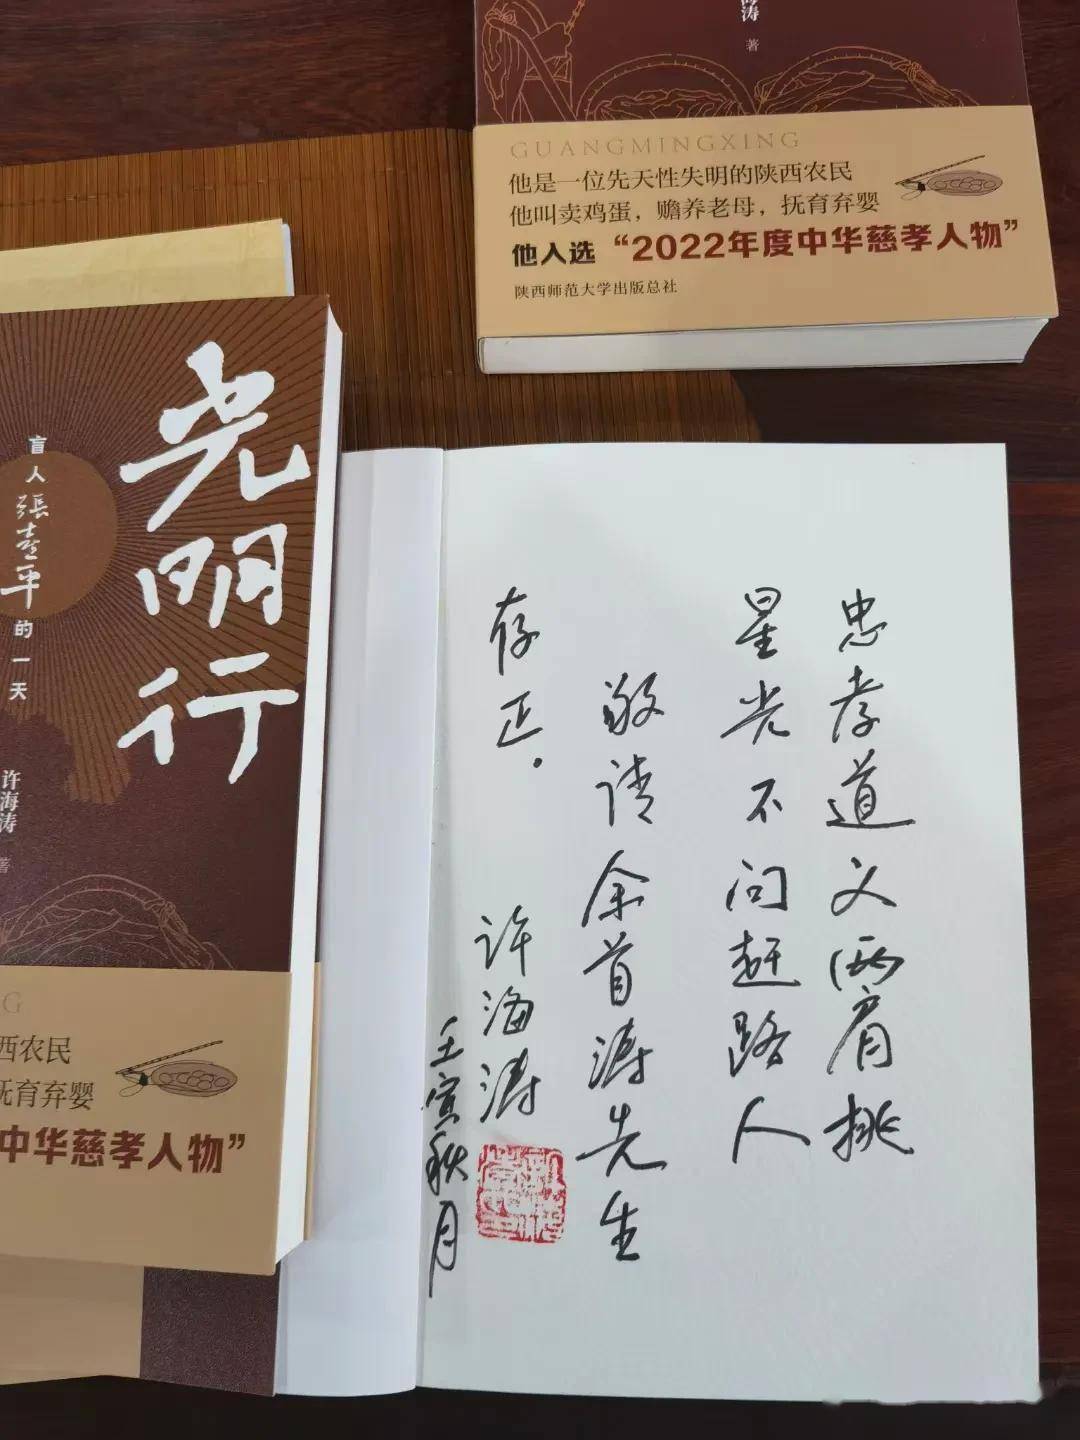 海涛 著
GUANGMINGXING
他是一位先天性失明的陕西农民
他叫卖鸡蛋，赡养老母，抚育弃婴
他入选“2022年度中华慈孝人物”
陕西师范大学出版总社
光明行
盲人張喜平的一天
许海涛 著
G
西农民
抚育弃婴
中华慈孝人物”
忠孝道义两肩挑
星光不问赶路人
敬请余首涛先生
存正。
许海涛
壬寅秋月